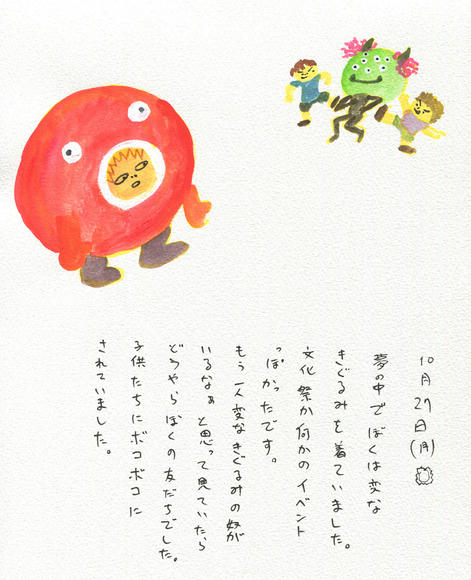 10月27日(月)
夢の中でぼくは変な
きぐるみを着ていました。
文化祭か何かのイベント
っぽかったです。
もう一人変なきぐるみの奴が
いるなぁ と思って見ていたら
どうやらぼくの友だちでした。
子供たちにボコボコに
されていました。